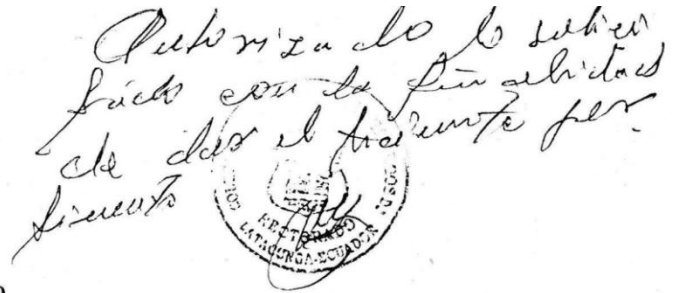 Autorizado lo solici
tado con la finalidad
de dar el tramite per
tinente
RECTORADO
LATACUNGA-ECUADOR